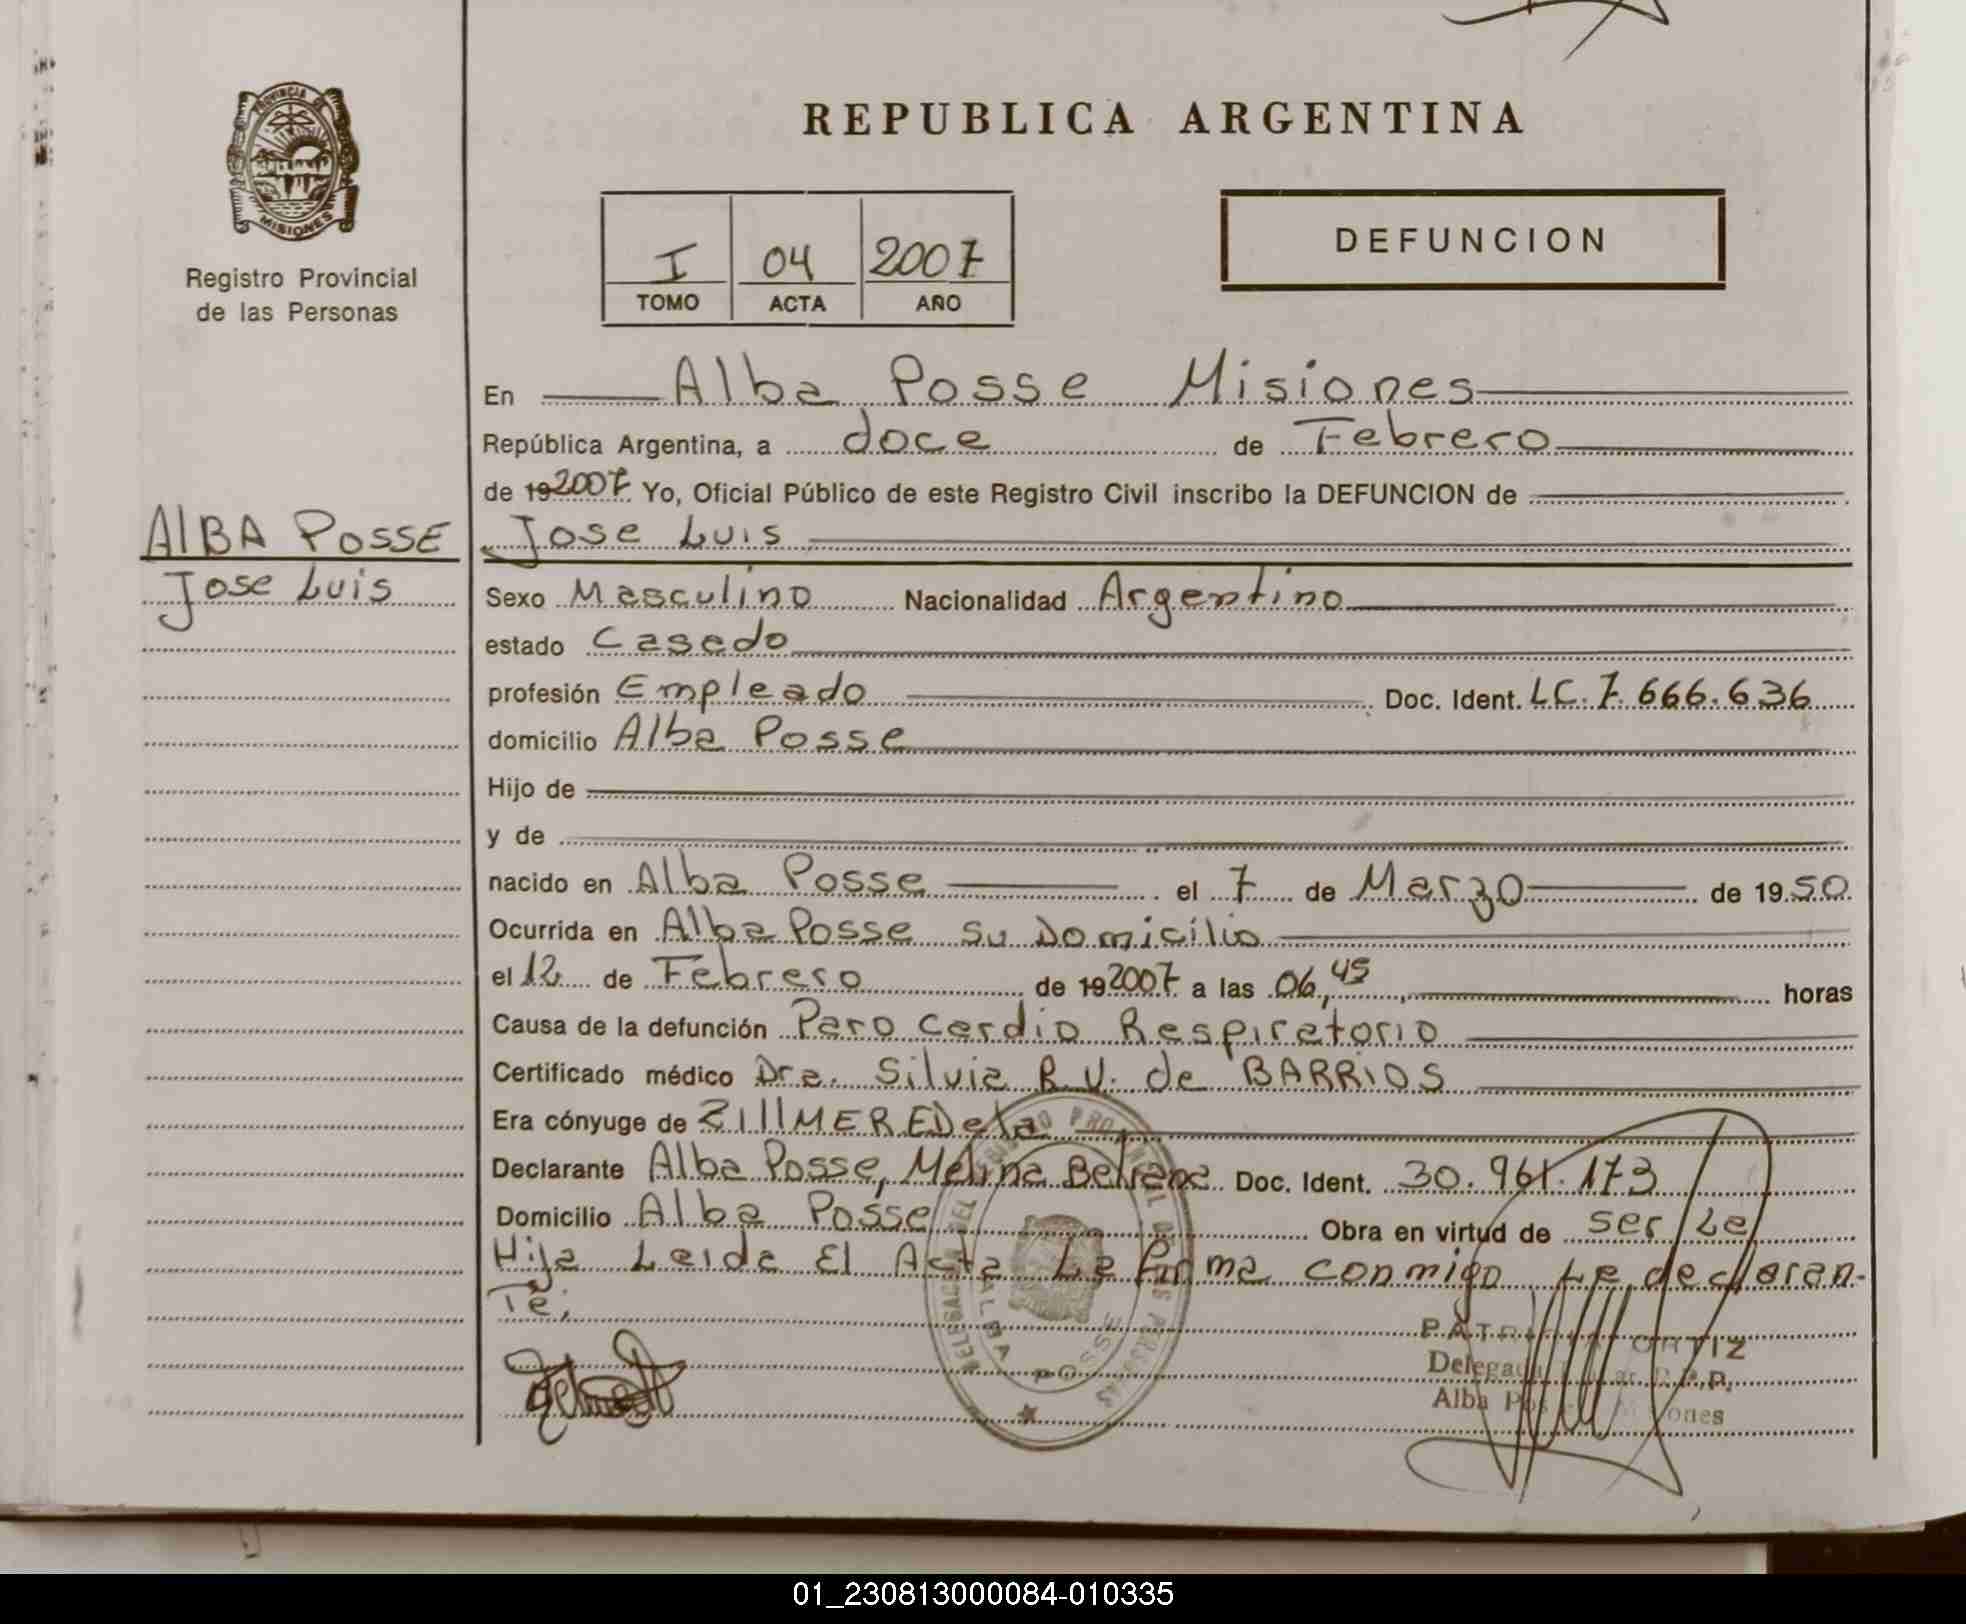 PROVINCIA DE
MISIONES
Registro Provincial
de las Personas
REPUBLICA ARGENTINA
I 04 2007
TOMO ACTA AÑO
DEFUNCION
En Alba Posse Misiones
República Argentina, a doce de Febrero
de 192007 Yo, Oficial Público de este Registro Civil inscribo la DEFUNCION de
AlBA POSSE Jose Luis
Jose Luis
Sexo Masculino Nacionalidad Argentino
estado Casado
profesión Empleado Doc. Ident. LC. 7.666.636
domicilio Alba Posse
Hijo de
y de
nacido en Alba Posse el 7 de Marzo de 1950
Ocurrida en Alba Posse su Domicilio
el 12 de Febrero de 192007 a las 06,45 horas
Causa de la defunción Paro Cardio Respiratorio
Certificado médico Dra. Silvia R.V. de BARRIOS
Era cónyuge de ZIllMER EDeta
Declarante Alba Posse, Melina Doc. Ident. 30.961.173
Domicilio Alba Posse Obra en virtud de ser La
Hija Leida El Acta La firma conmigo La declaran-
Te.
ALBA POSSE
PATRICIA ORTIZ
Delegada R.P.P.
Alba Posse Misiones
01_230813000084-010335